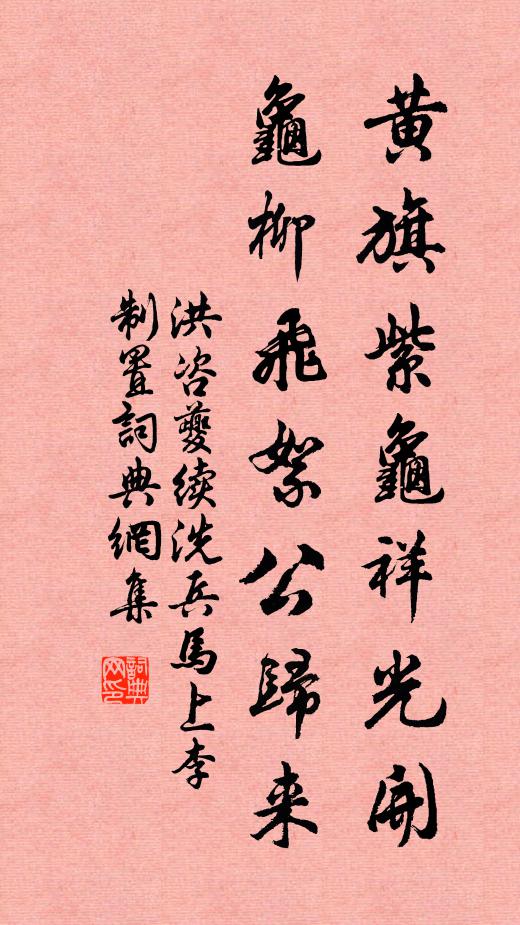 黄旗紫龜祥光開
龜柳飛絮公歸来
洪咨夔續洗兵馬上李
制置詞典網集
詞典网印